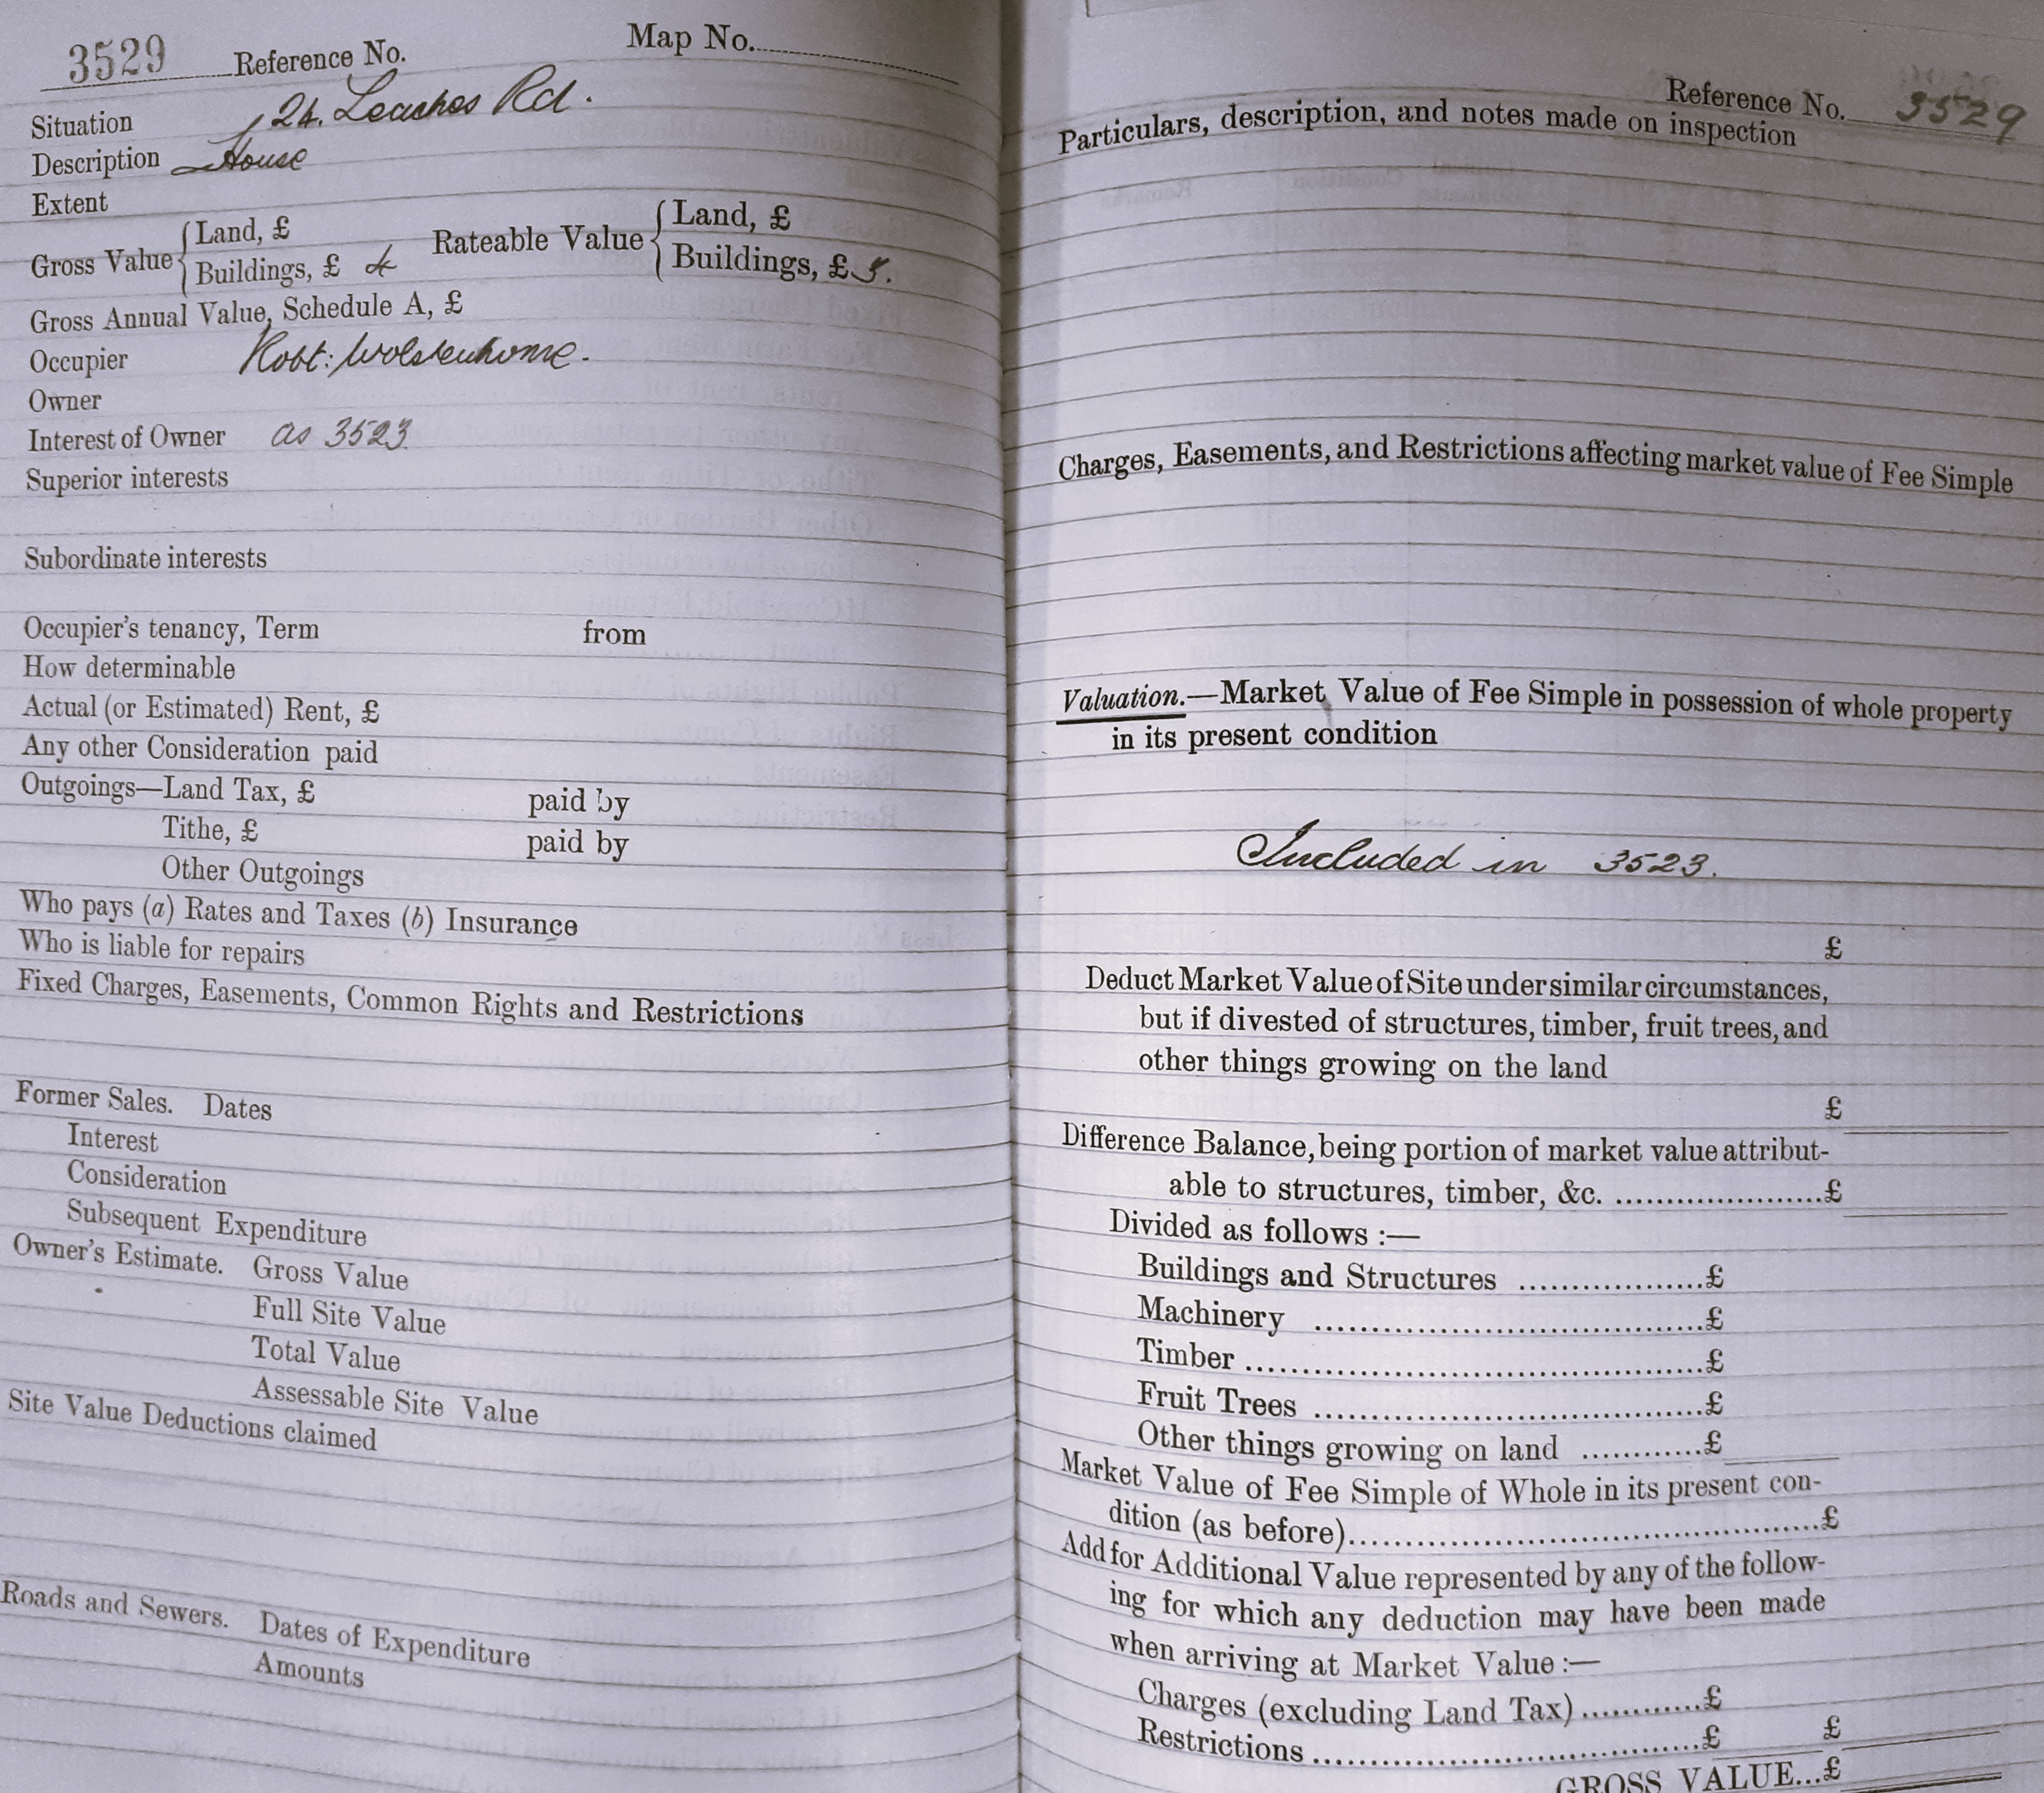 3529 Reference No. Map No.
Situation 24. Leaches Rd.
Description House
Extent
Gross Value { Land, £ Rateable Value { Land, £
Buildings, £ 4 Buildings, £ 3.
Gross Annual Value, Schedule A, £
Occupier Robt: Wolstenhome.
Owner
Interest of Owner as 3523.
Superior interests
Subordinate interests
Occupier's tenancy, Term from
How determinable
Actual (or Estimated) Rent, £
Any other Consideration paid
Outgoings—Land Tax, £ paid by
Tithe, £ paid by
Other Outgoings
Who pays (a) Rates and Taxes (b) Insurance
Who is liable for repairs
Fixed Charges, Easements, Common Rights and Restrictions
Former Sales. Dates
Interest
Consideration
Subsequent Expenditure
Owner's Estimate. Gross Value
Full Site Value
Total Value
Assessable Site Value
Site Value Deductions claimed
Roads and Sewers. Dates of Expenditure
Amounts
Reference No. 3529
Particulars, description, and notes made on inspection
Charges, Easements, and Restrictions affecting market value of Fee Simple
Valuation.—Market Value of Fee Simple in possession of whole property
in its present condition
Included in 3523.
£
Deduct Market Value of Site under similar circumstances,
but if divested of structures, timber, fruit trees, and
other things growing on the land
£
Difference Balance, being portion of market value attribut-
able to structures, timber, &c. ......................£
Divided as follows :—
Buildings and Structures ...................£
Machinery ........................................£
Timber ...............................................£
Fruit Trees ........................................£
Other things growing on land ............£
Market Value of Fee Simple of Whole in its present con-
dition (as before)................................................£
Add for Additional Value represented by any of the follow-
ing for which any deduction may have been made
when arriving at Market Value :—
Charges (excluding Land Tax) ............£
Restrictions .......................................£ £
GROSS VALUE...£